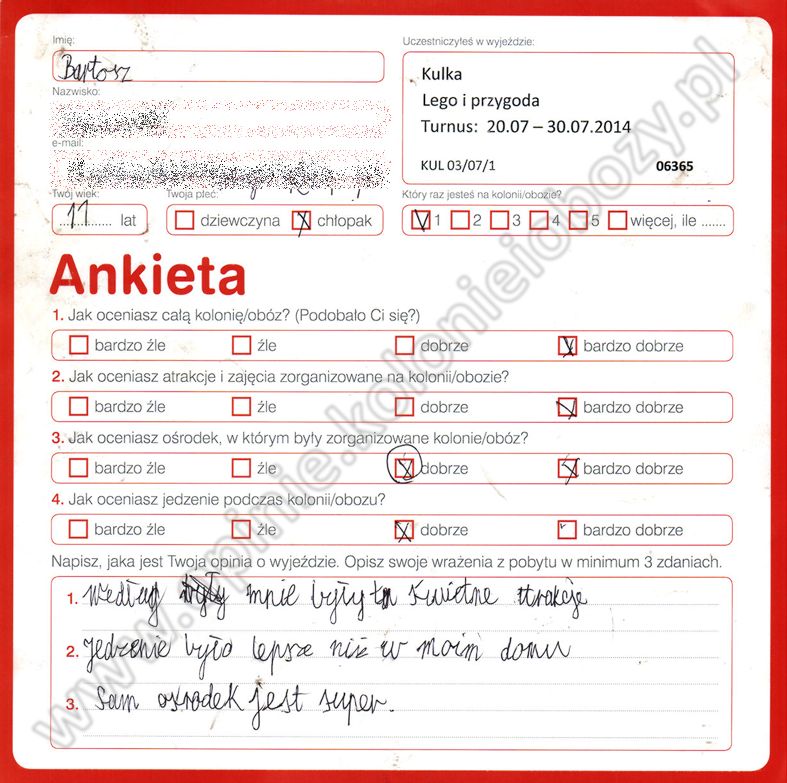 Imię:
Bartosz
Uczestniczyłeś w wyjeździe:
Kulka
Lego i przygoda
Turnus: 20.07 – 30.07.2014
KUL 03/07/1 06365
Nazwisko:
e-mail:
Twój wiek:
11 lat
Twoja płeć:
dziewczyna chłopak
Który raz jesteś na kolonii/obozie?
1 2 3 4 5 więcej, ile .......
Ankieta
1. Jak oceniasz całą kolonię/obóz? (Podobało Ci się?)
bardzo źle źle dobrze bardzo dobrze
2. Jak oceniasz atrakcje i zajęcia zorganizowane na kolonii/obozie?
bardzo źle źle dobrze bardzo dobrze
3. Jak oceniasz ośrodek, w którym były zorganizowane kolonie/obóz?
bardzo źle źle dobrze bardzo dobrze
4. Jak oceniasz jedzenie podczas kolonii/obozu?
bardzo źle źle dobrze bardzo dobrze
Napisz, jaka jest Twoja opinia o wyjeździe. Opisz swoje wrażenia z pobytu w minimum 3 zdaniach.
1. Według mnie były tu świetne atrakcje
2. Jedzenie było lepsze niż w moim domu
3. Sam ośrodek jest super.
www.opinie.kolonieiobozy.pl